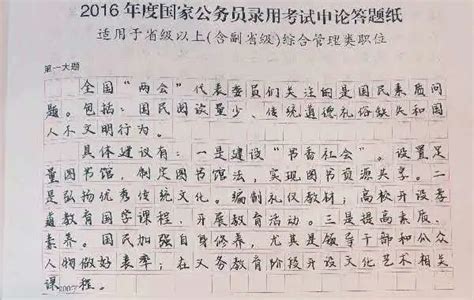 2016年度国家公务员录用考试申论答题纸
适用于省级以上(含副省级)综合管理类职位
第一大题
全国“两会”代表委员们关注的是国民素质问
题。包括：国民阅读量少、传统道德礼俗缺失和国
人不文明行为。
具体建议有：一是建设“书香社会”。设置足
量图书馆，制定图书馆法，实现图书资源共享。二
是弘扬优秀传统文化。编制礼仪教材；高校开设孝
道教育国学课程，开展教育活动。三是提高素质、
素养。国民加强自身修养，尤其是领导干部和公众
人物做好表率；在义务教育阶段开设文化艺术相关
课程。
200字